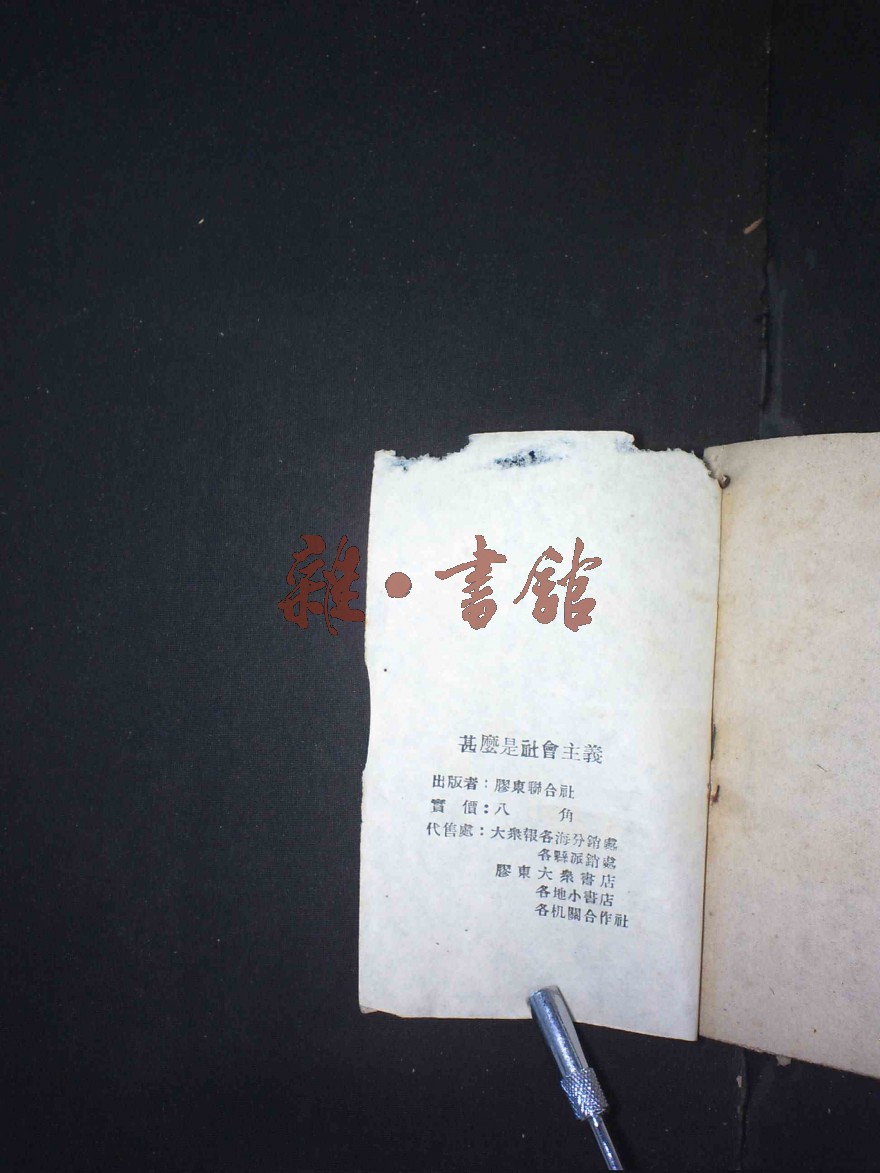 雜·書館
甚麼是社會主義
出版者：膠東聯合社
實價：八角
代售處：大衆報各海分銷處
各縣派銷處
膠東大衆書店
各地小書店
各机關合作社